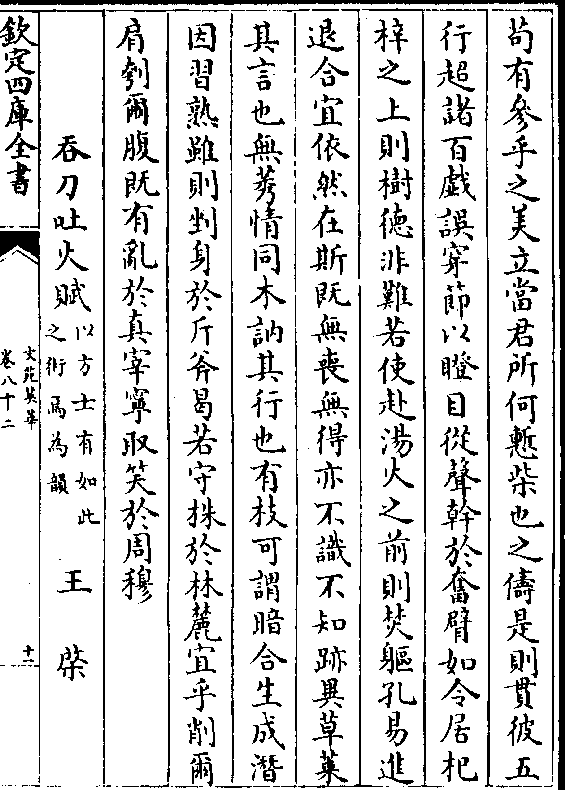 苟有參乎之美立當君所何慙柴也之儔是則貫彼五
行超諸百戲誤穿節以瞪目從聲幹於奮臂如令居杞
梓之上則樹德非難若使赴湯火之前則焚軀孔易進
退合宜依然在斯既無喪無得亦不識不知跡異草萊
其言也無莠情同木訥其行也有枝可謂暗合生成潛
因習熟雖則剉身於斤斧曷若守株於林麓宜乎削爾
肩刳爾腹既有亂於真宰寧取笑於周穆
吞刀吐火賦 以方士有如此之術焉為韻 王棨
欽定四庫全書
文苑英華
卷八十二
十一